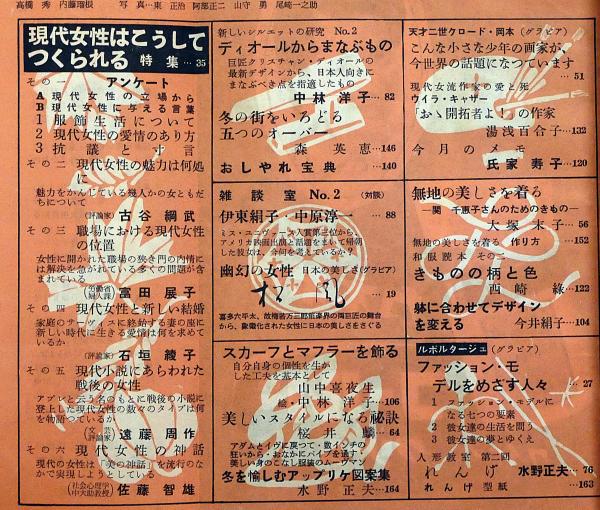 高橋 秀 内藤瑠根 写真…東 正治 阿部正二 山守 勇 尾崎一之助
現代女性はこうして
つくられる 特集…35
その一 アンケート
A 現代女性の立場から
B 現代女性に与える言葉
1 服飾生活について
2 現代女性の愛情のあり方
3 抗議と寸言
その二 現代女性の魅力は何処
に
魅力をかんじている幾人かの女ともだ
ちについて
(評論家) 古谷綱武
その三 職場における現代女性
の位置
女性に開かれた職場の狭き門の内情に
は解決を急がれている多くの問題が含ま
れている
(労働省婦人課) 富田展子
その四 現代女性と新しい結婚
家庭のサーヴィスに終始する妻の座に
新しい時代に生きる愛情は何を求めて
いるか
(評論家) 石垣綾子
その五 現代小説にあらわれた
戦後の女性
アプレと云う名のもとに戦後の小説に
登上した現代女性の数々のタイプは何
を物語っているか
(文芸評論家) 遠藤周作
その六 現代女性の神話
現代の女性は「美の神話」を流行のな
かで実現しようとしている
(社会心理学 中大助教授) 佐藤智雄
新しいシルエットの研究 No.2
ディオールからまなぶもの
巨匠クリスチャン・ディオールの
最新デザインから、日本人向きに
まなぶべき点を指摘したもの
中林洋子…82
冬の街をいろどる
五つのオーバー
森英恵…146
おしゃれ宝典…140
雑談室 No.2 (対談)
伊東絹子・中原淳一…88
ミス・ユニヴァース入賞第三位から、
アメリカ映画出演と話題をまいて帰朝
した彼女は、今何を考えているか?
幽幻の女性 日本の美しさ(グラビア)
松風…19
喜多六平太、故梅若万三郎能楽界の両巨匠の舞台
から、象徴化された女性に日本の美しさをさぐる
スカーフとマフラーを飾る
自分自身の個性を生か
した工夫を基本として
山中喜夜生
絵・中林洋子…106
美しいスタイルになる秘訣
桜井麟…64
アダムとイヴに戻つて・数インチの
狂いから・おなかにパイプを通す・
美しい身のこなし服装のムーヴマン
冬を愉しむアップリケ図案集
水野正夫…164
天才二世クロード・岡本(グラビア)
こんな小さな少年の画家が、
今世界の話題になつています
…51
現代女流作家の愛と死
ウイラ・キャザー
「おゝ開拓者よ!」の作家
湯浅百合子…132
今月のメモ
氏家寿子…120
無地の美しさを着る
―関 千恵子さんのためのきもの―
大塚末子…56
無地の美しさを着る、作り方…152
和服読本 その二
きものの柄と色
西崎緑…122
躰に合わせてデザイン
を変える 今井絹子…104
ルポルタージュ (グラビア)
ファッション・モ
デルをめざす人々…27
1 ファッション・モデルに
なる七つの要素
2 彼女達の生活を問う
3 彼女達の夢とゆくえ
人形教室 第二回
れんげ 水野正夫…76
れんげ型紙…163